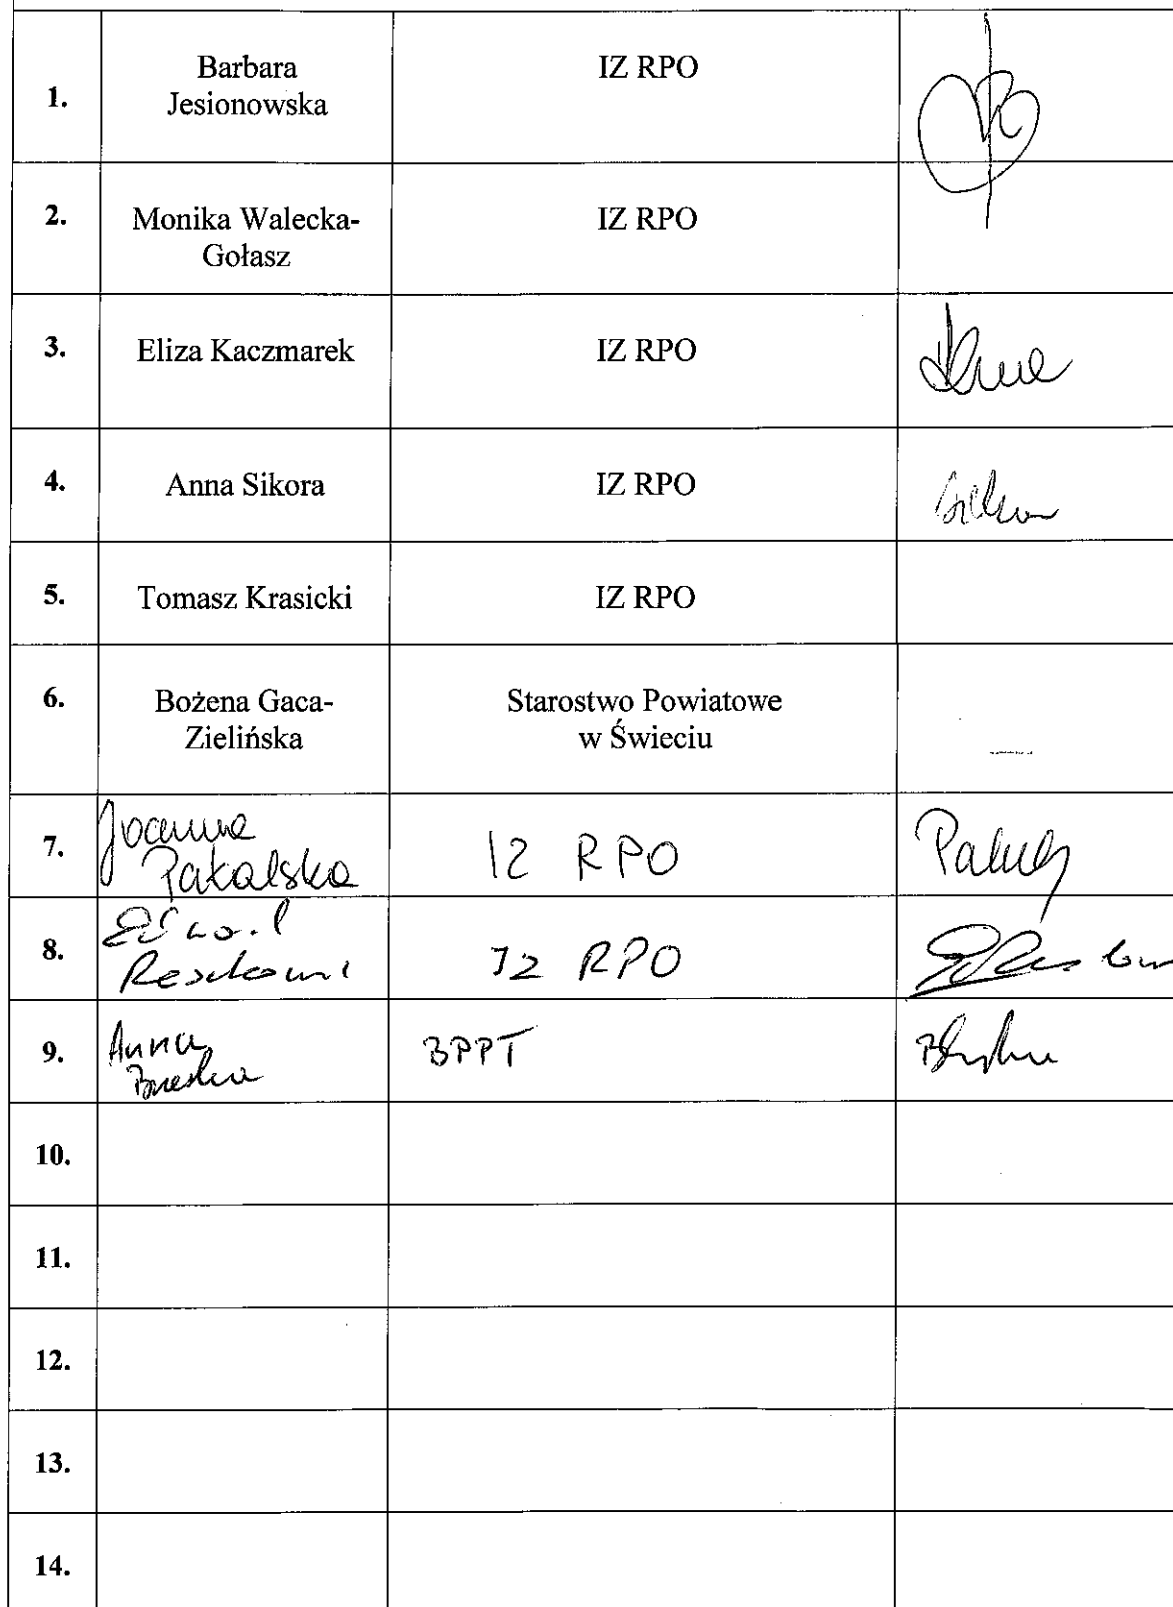 1. Barbara Jesionowska IZ RPO
2. Monika Walecka-Gołasz IZ RPO
3. Eliza Kaczmarek IZ RPO
4. Anna Sikora IZ RPO
5. Tomasz Krasicki IZ RPO
6. Bożena Gaca-Zielińska Starostwo Powiatowe w Świeciu
7. Joanna Pakalska IZ RPO
8. IZ RPO
9. Anna BPPT
10.
11.
12.
13.
14.